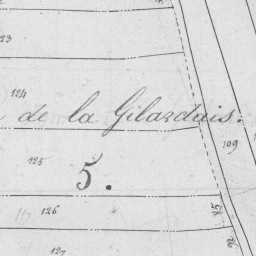 123
124
de la Gilarduis.
109
125
5.
126
127